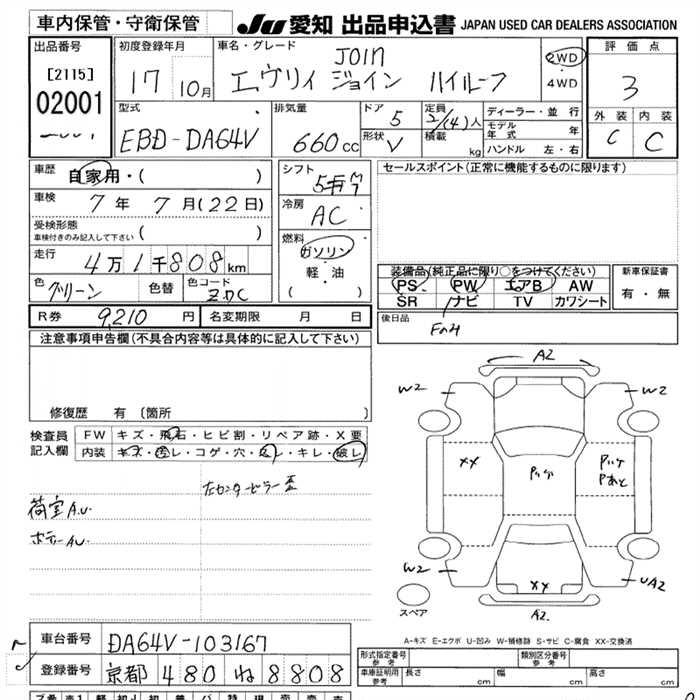 車内保管・守衛保管 JU 愛知 出品申込書 JAPAN USED CAR DEALERS ASSOCIATION
出品番号 初度登録年月 車名・グレード JOIN 評価点
[2115] 17 10月 エヴリィ ジョイン ハイルーフ 2WD 4WD 3
02001 型式 排気量 ドア 5 定員 2/(4)人 ディーラー・並行 外装 内装
EBD-DA64V 660cc 形状 V 積載 kg モデル年式 年 C C
ハンドル 左・右
車歴 自家用・( ) シフト 5 セールスポイント(正常に機能するものに限ります)
車検 7年 7月(22日) 冷房 AC
受検形態 車検付きのみ記入して下さい ( )
燃料 ガソリン
走行 4万1千808km 軽・油 装備品(純正品に限り○をつけてください) 新車保証書
色 グリーン 色替 色コード ZDC ( ) PS PW エアB AW 有・無
SR ナビ TV カワシート
R券 9,210円 名変期限 月 日 後日品
注意事項申告欄(不具合内容等は具体的に記入して下さい)
修復歴 有 (箇所 )
検査員記入欄 FW キズ・飛石・ヒビ割・リペア跡・X要
内装 キズ・汚レ・コゲ・穴・スレ・キレ・破レ
荷室A.U.
ボデーAU.
A2
W2 W2
XX
W2 UA2
XX
スペア A2.
A-キズ E-エクボ U-凹み W-補修跡 S-サビ C-腐食 XX-交換済
車台番号 DA64V-103167
登録番号 京都 480 ね 8808
形式指定番号 参考 類別区分番号 参考
車庫証明用 参考 長さ cm 幅 cm 高さ cm